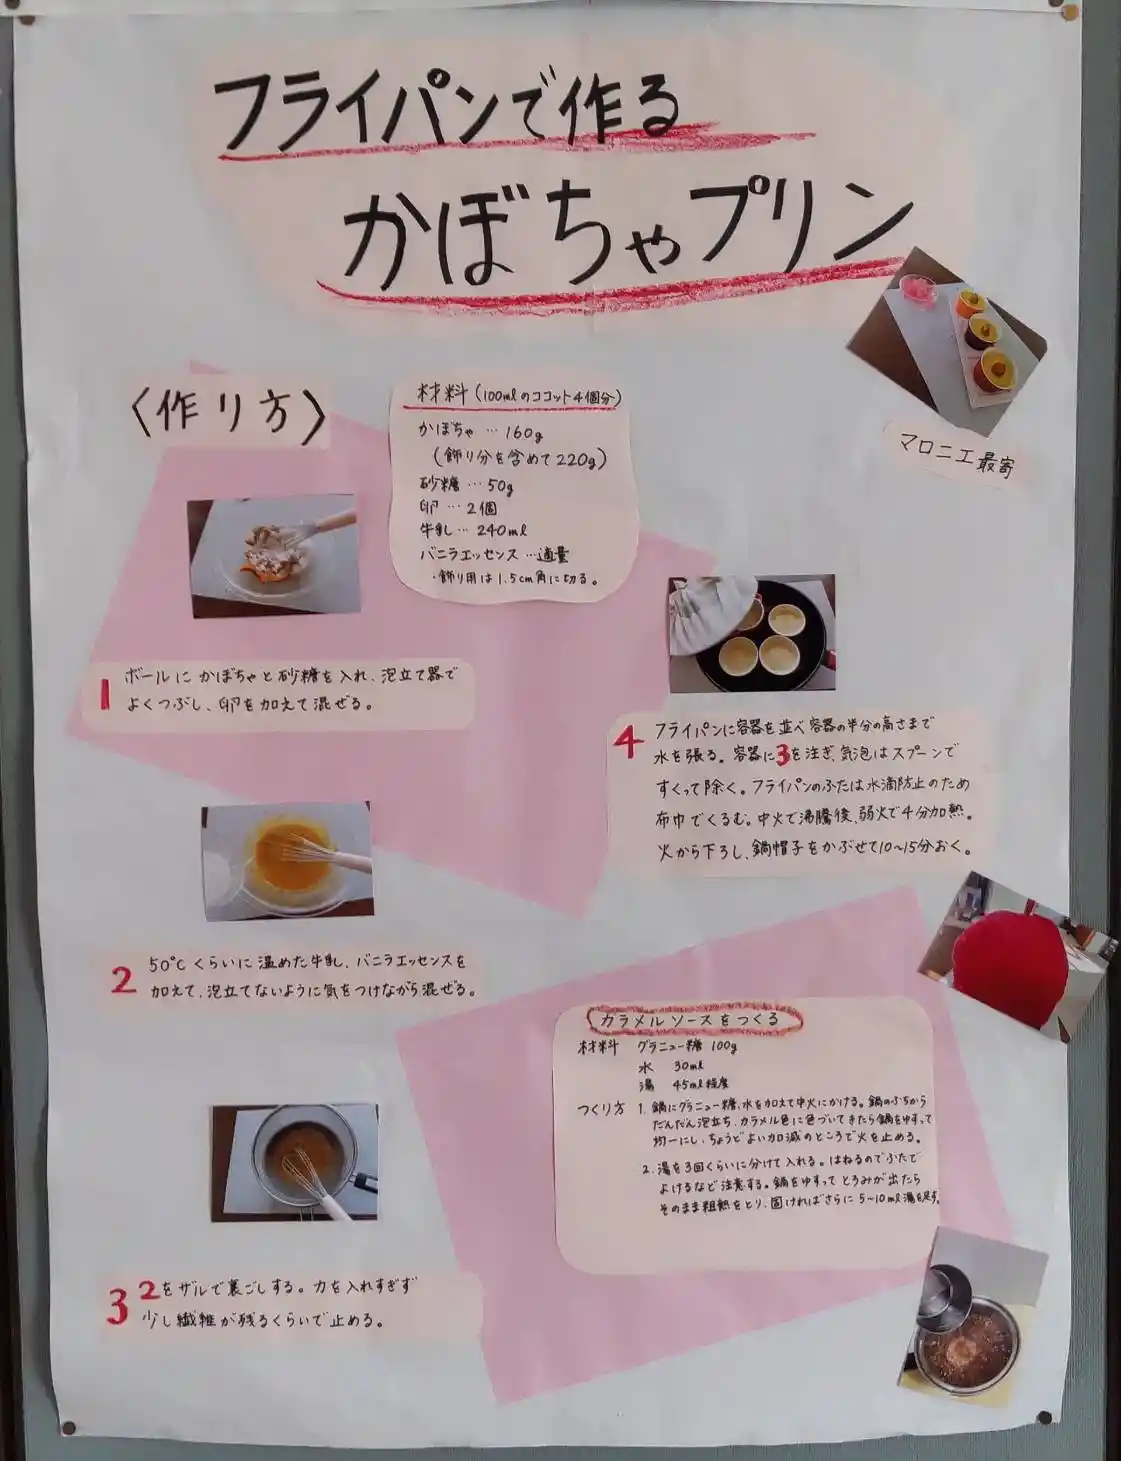 フライパンで作る
かぼちゃプリン
マロニエ最寄
〈作り方〉
材料(100mlのココット4個分)
かぼちゃ…160g
(飾り分を含めて220g)
砂糖…50g
卵…2個
牛乳…240ml
バニラエッセンス…適量
・飾り用は1.5cm角に切る。
1 ボールにかぼちゃと砂糖を入れ、泡立て器で
よくつぶし、卵を加えて混ぜる。
2 50℃くらいに温めた牛乳、バニラエッセンスを
加えて、泡立てないように気をつけながら混ぜる。
3 2をザルで裏ごしする。力を入れすぎず
少し繊維が残るくらいで止める。
4 フライパンに容器を並べ容器の半分の高さまで
水を張る。容器に3を注ぎ、気泡はスプーンで
すくって除く。フライパンのふたは水滴防止のため
布巾でくるむ。中火で沸騰後、弱火で4分加熱。
火から下ろし、鍋帽子をかぶせて10~15分おく。
カラメルソースをつくる
材料 グラニュー糖 100g
水 30ml
湯 45ml程度
つくり方 1. 鍋にグラニュー糖、水を加えて中火にかける。鍋のふちから
だんだん泡立ち、カラメル色に色づいてきたら鍋をゆすって
均一にし、ちょうどよい加減のところで火を止める。
2. 湯を3回くらいに分けて入れる。はねるのでふたで
よけるなど注意する。鍋をゆすってとろみが出たら
そのまま粗熱をとり、固ければさらに5~10ml湯を足す。